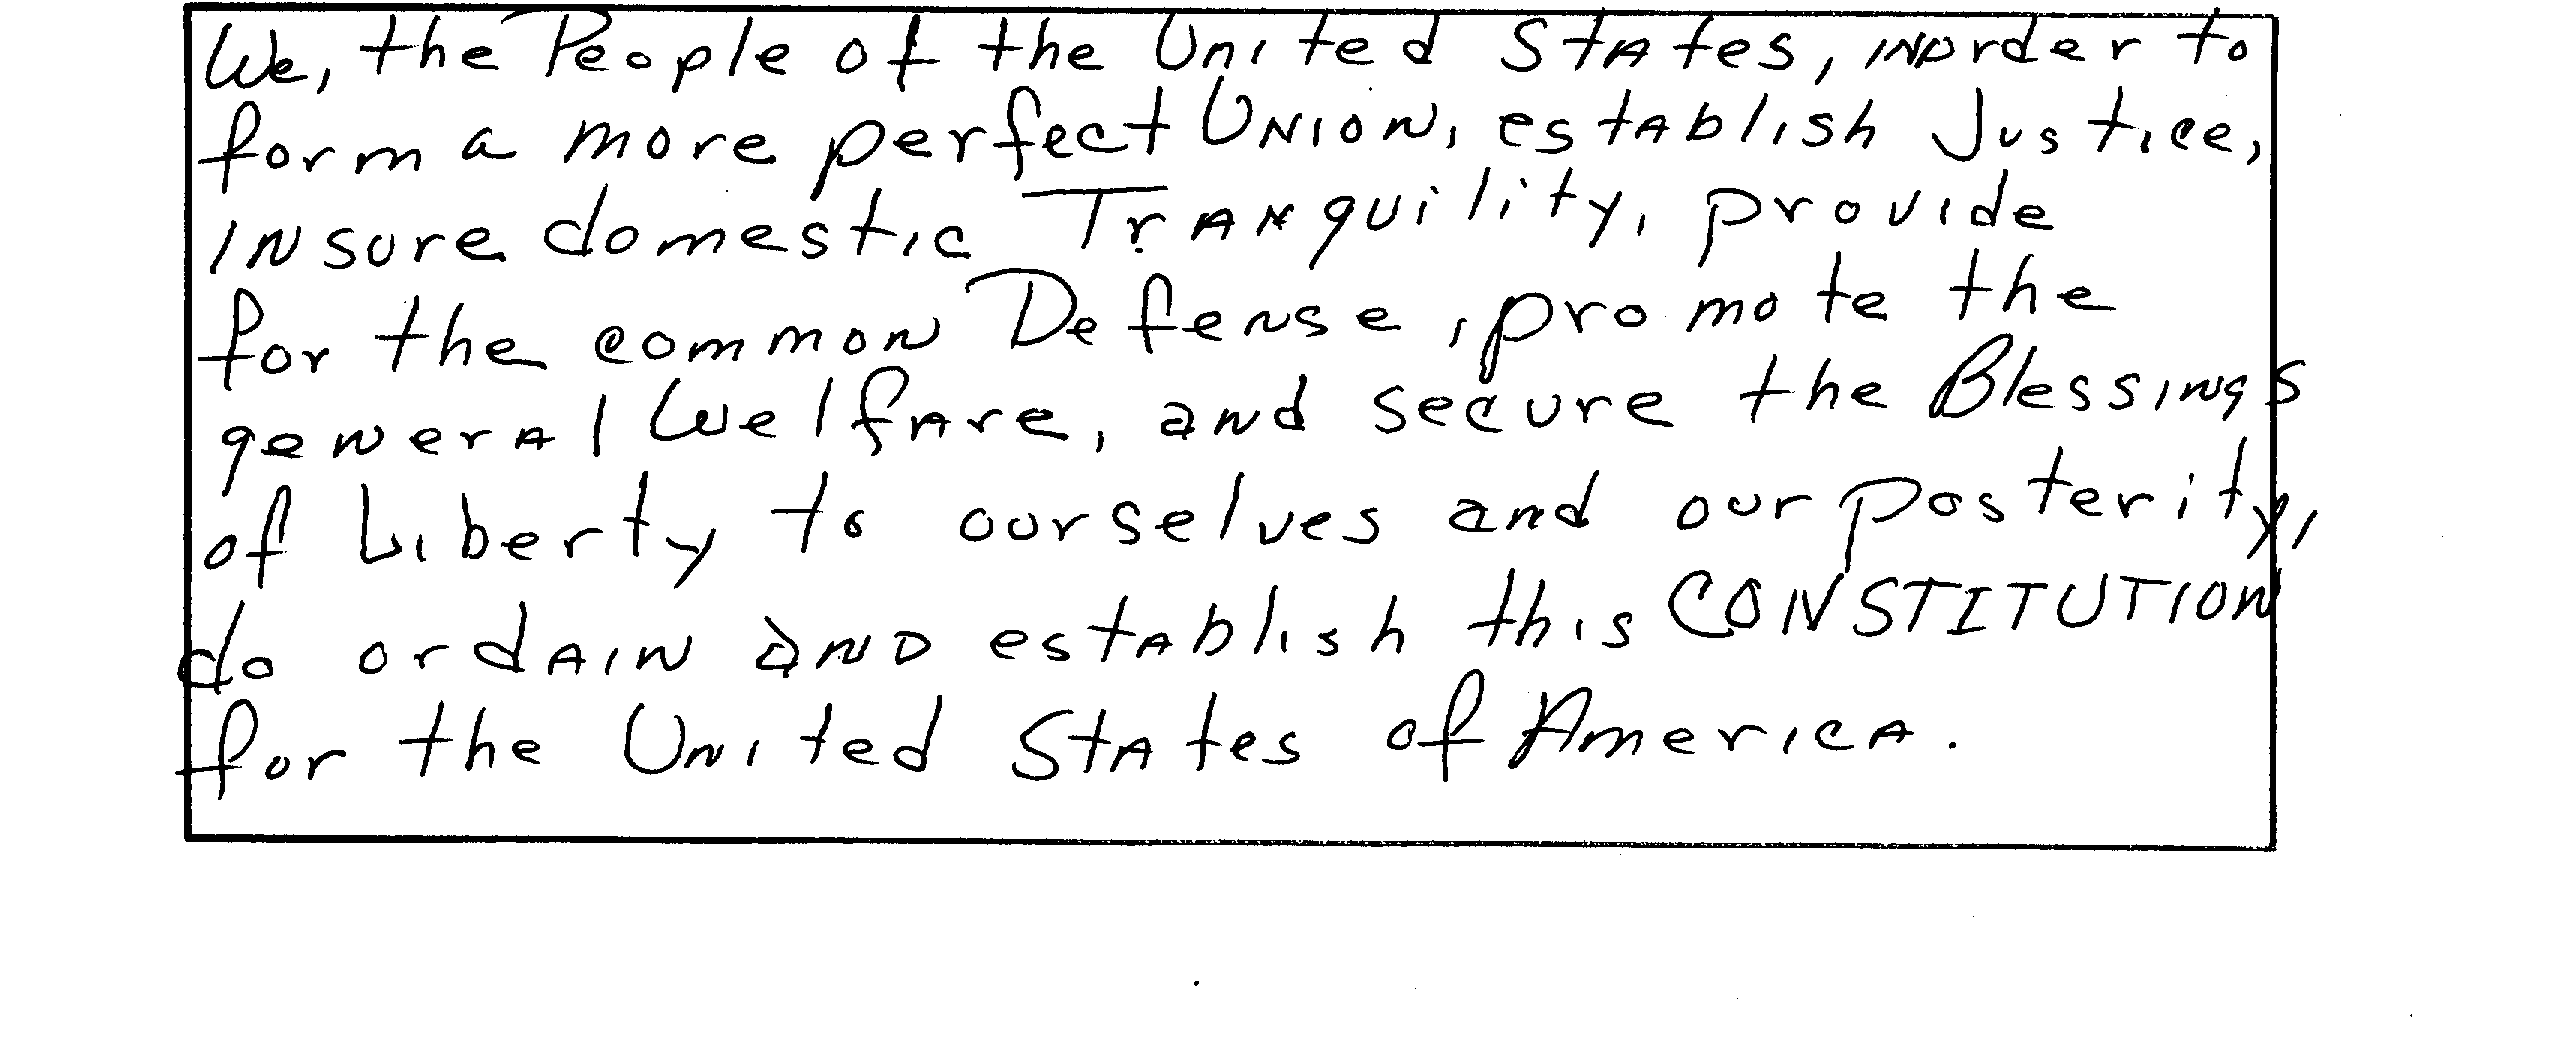 We, the People of the United States, inorder to
form a more perfect Union, establish Justice,
insure domestic Tranquility, provide
for the common Defense, promote the
general Welfare, and secure the Blessings
of Liberty to ourselves and our posterity,
do ordain and establish this CONSTITUTION
for the United States of America.